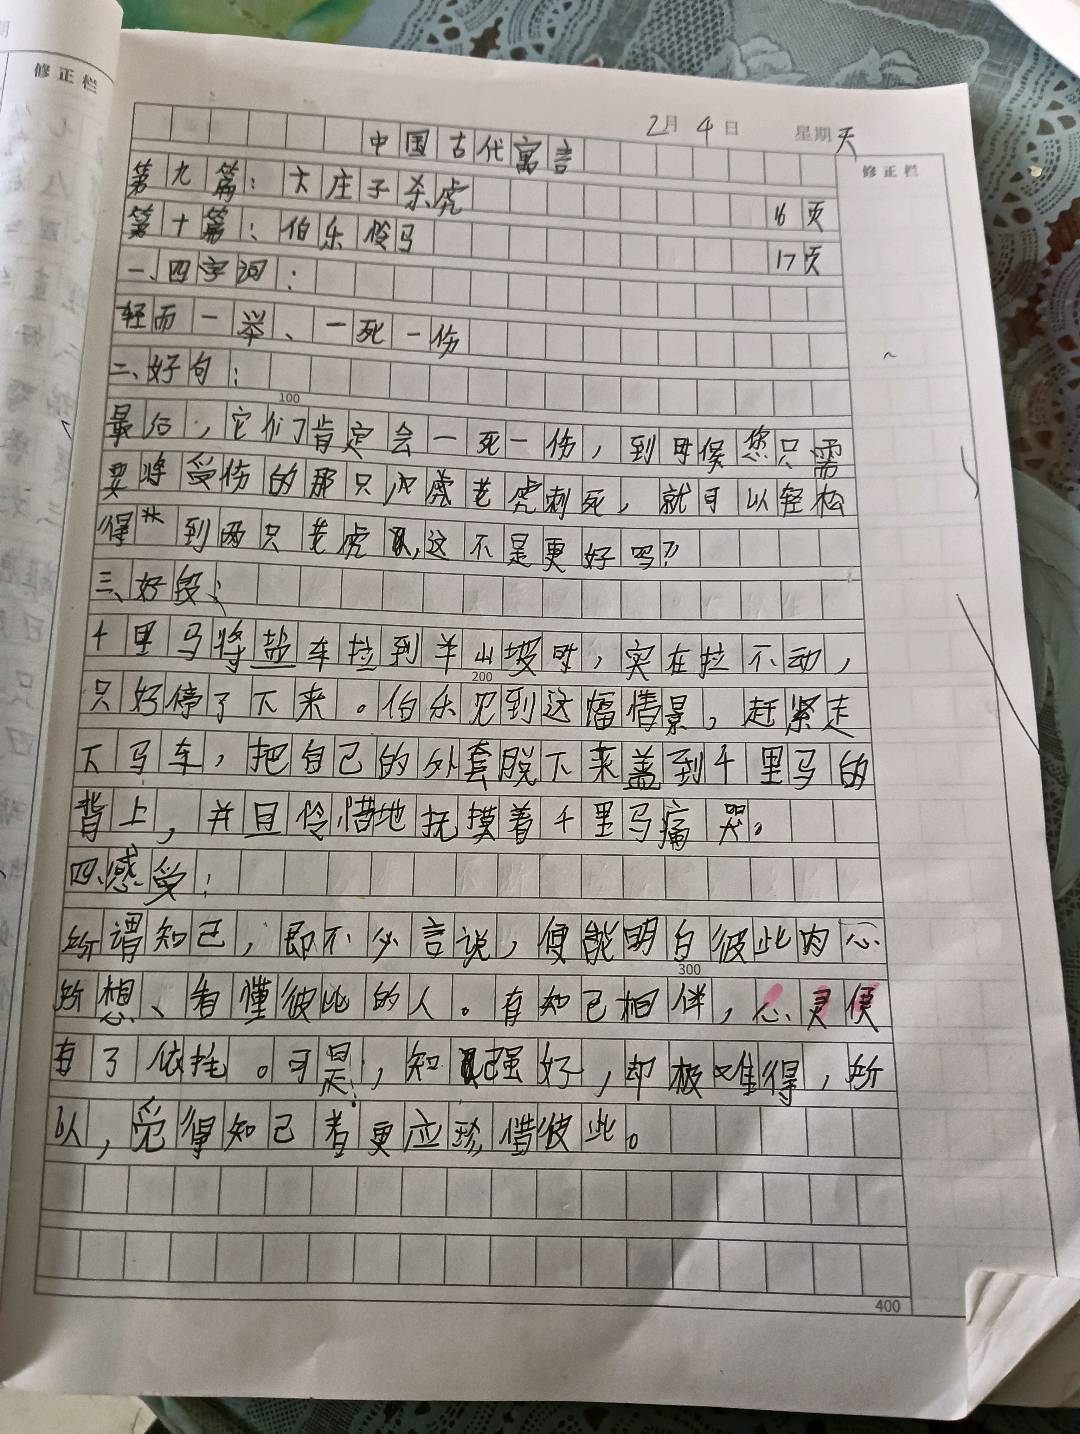 修正栏
2月 4日 星期天
中国古代寓言
修正栏
第九篇：卞庄子杀虎 16页
第十篇：伯乐怜马 17页
一、四字词：
轻而一举、一死一伤
二、好句：
100
最后，它们肯定会一死一伤，到时候您只需
要将受伤的那只老虎刺死，就可以轻松
得到两只老虎，这不是更好吗？
三、好段：
千里马将盐车拉到半山坡时，实在拉不动，
200
只好停了下来。伯乐见到这幅情景，赶紧走
下马车，把自己的外套脱下来盖到千里马的
背上，并且怜惜地抚摸着千里马痛哭。
四、感受：
所谓知己，即不必言说，便能明白彼此内心
300
所想、看懂彼此的人。有知己相伴，心灵便
有了依托。可是，知己虽好，却极难得，所
以，觉得知己者更应珍惜彼此。
400